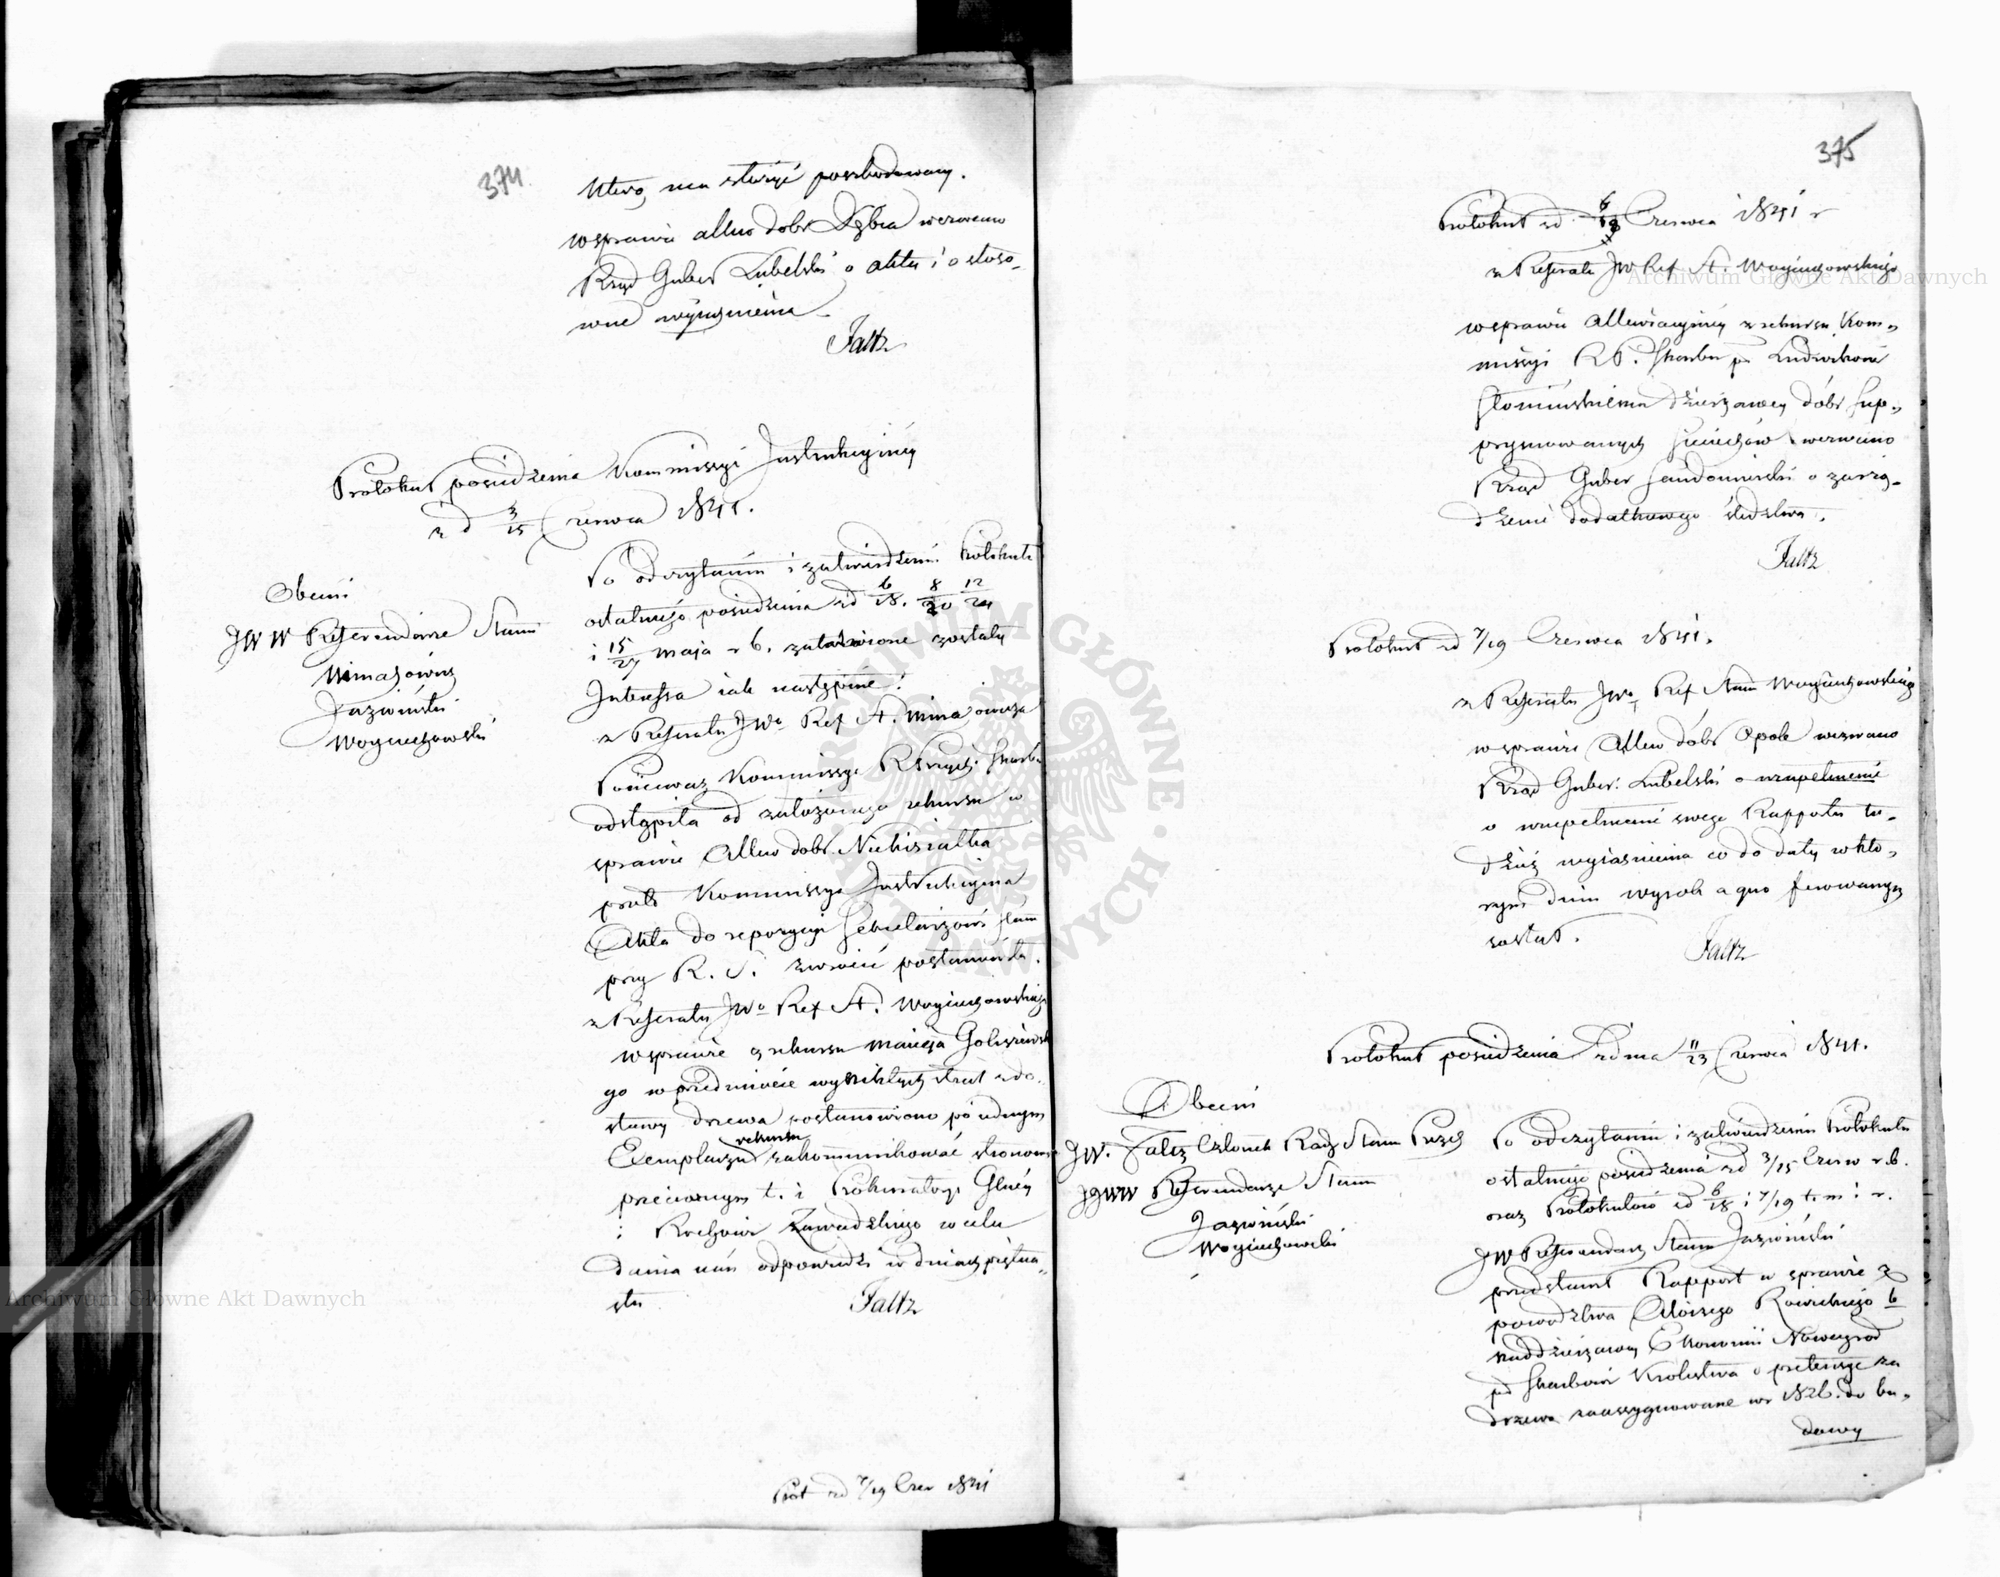 374
którą ma złożyć poszkodowany.
w sprawie allew dobr Dębia wezwano
Rząd Guber Lubelski o akta i o stoso-
wne wyjaśnienia.
Faltz
Protokuł posiedzenia Kommissyi Instrukcyjnéy
z d 3/15 Czerwca 1841.
Obecni
JWW Referendarze Stanu
Minasowicz
Jaźwiński
Woyciechowski
Po odczytaniu i zatwierdzeniu Protokułu
ostatniego posiedzenia zd 6/18. 8/20 12/24
i 15/27 maja r b. załatwione zostały
Interessa jak następnie:
z Referatu JWo Ref St. Minasowicza
Ponieważ Kommissya R Przych. Skarbu
odstąpiła od założonego rekursu w
sprawie Allew dobr Niekisiałka
przeto Kommissya Instrukcyjna
Akta do repozycyi Sekretarzowi Stanu
przy R. S. zwrócić postanowiła.
z Referatu JWo Ref St. Woyciechowskiego
w sprawie z rekursu Macieja Goliszewsk
go w przedmiocie wynikłych strat z do-
stawy drzewa postanowiono po iednym
Exemplarzu rekursu zakommunikować stronom
przeciwnym t. i Prokuratoryi Głney
i Rochowi Zawadzkiego w celu
dania nań odpowiedzi w dniach piętna-
stu
Faltz
Prot zd 7/19 Czer 1841
375
Protokuł zd 6/18 Czerwca 1841 r
z Referatu JW Ref St. Woyciechowskiego
w sprawie Allewiacyjnéy z rekursu Kom-
missyi RP. Skarbu pko Ludwikowi
Słomińskiemu dzierżawcy dóbr Sup-
prymowanych Sieciechów wezwano
Rząd Guber Sandomierski o zarzą-
dzenie dodatkowego śledztwa.
Faltz
Protokuł zd 7/19 Czerwca 1841.
z Referatu JWo Ref Stanu Woyciechowskiego
w sprawie Allew dóbr Opole wezwano
Rząd Guber. Lubelski o uzupełnienie
o uzupełnienie swego Rapportu tu-
dzież wyiaśnienia co do daty w któ-
rym dniu wyrok a quo ferowanym
został.
Faltz
Protokuł posiedzenia zdnia 11/23 Czerwca 1841.
Obecni
JW. Faltz Członek Rady Stanu Prezd
JJWW Referendarze Stanu
Jaźwiński
Woyciechowski
Po odczytaniu i zatwierdzeniu Protokułu
ostatniego posiedzenia zd 3/15 Czerw r.b.
oraz Protokułów zd 6/18 i 7/19 t. m i r.
JW Referendarz Stanu Jaźwiński
przedstawił Rapport w sprawie z
powództwa Aloizego Rowickiego b
naddzierżawcy Ekonomii Nowegrod
pd Skarbowi Królestwa o pretensye za
drzewo zaassygnowane w r 1826. do bu-
dowy
Archiwum Główne Akt Dawnych
Archiwum Główne Akt Dawnych
ARCHIWUM GŁÓWNE AKT DAWNYCH